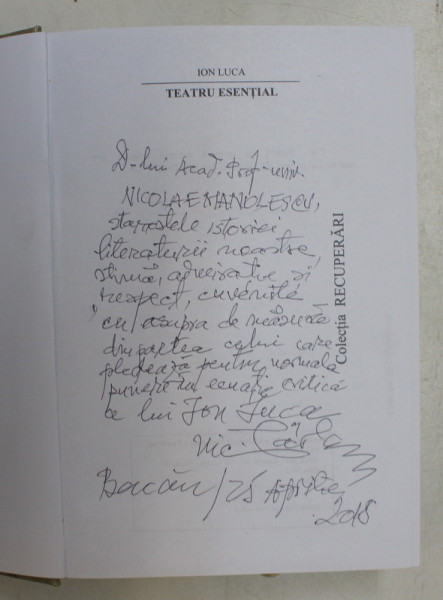 ION LUCA
TEATRU ESENȚIAL
D-lui Acad. Prof. univ.
NICOLAE MANOLESCU,
starostele istoriei
literaturii noastre,
stimă, admirație și
respect, cuvenite
cu asupra de măsură
din partea celui care
pledează pentru normala
punere în ecuație critică
a lui Ion Luca
Nic.
Bacău / 25 Aprilie
2018
Colecția RECUPERĂRI